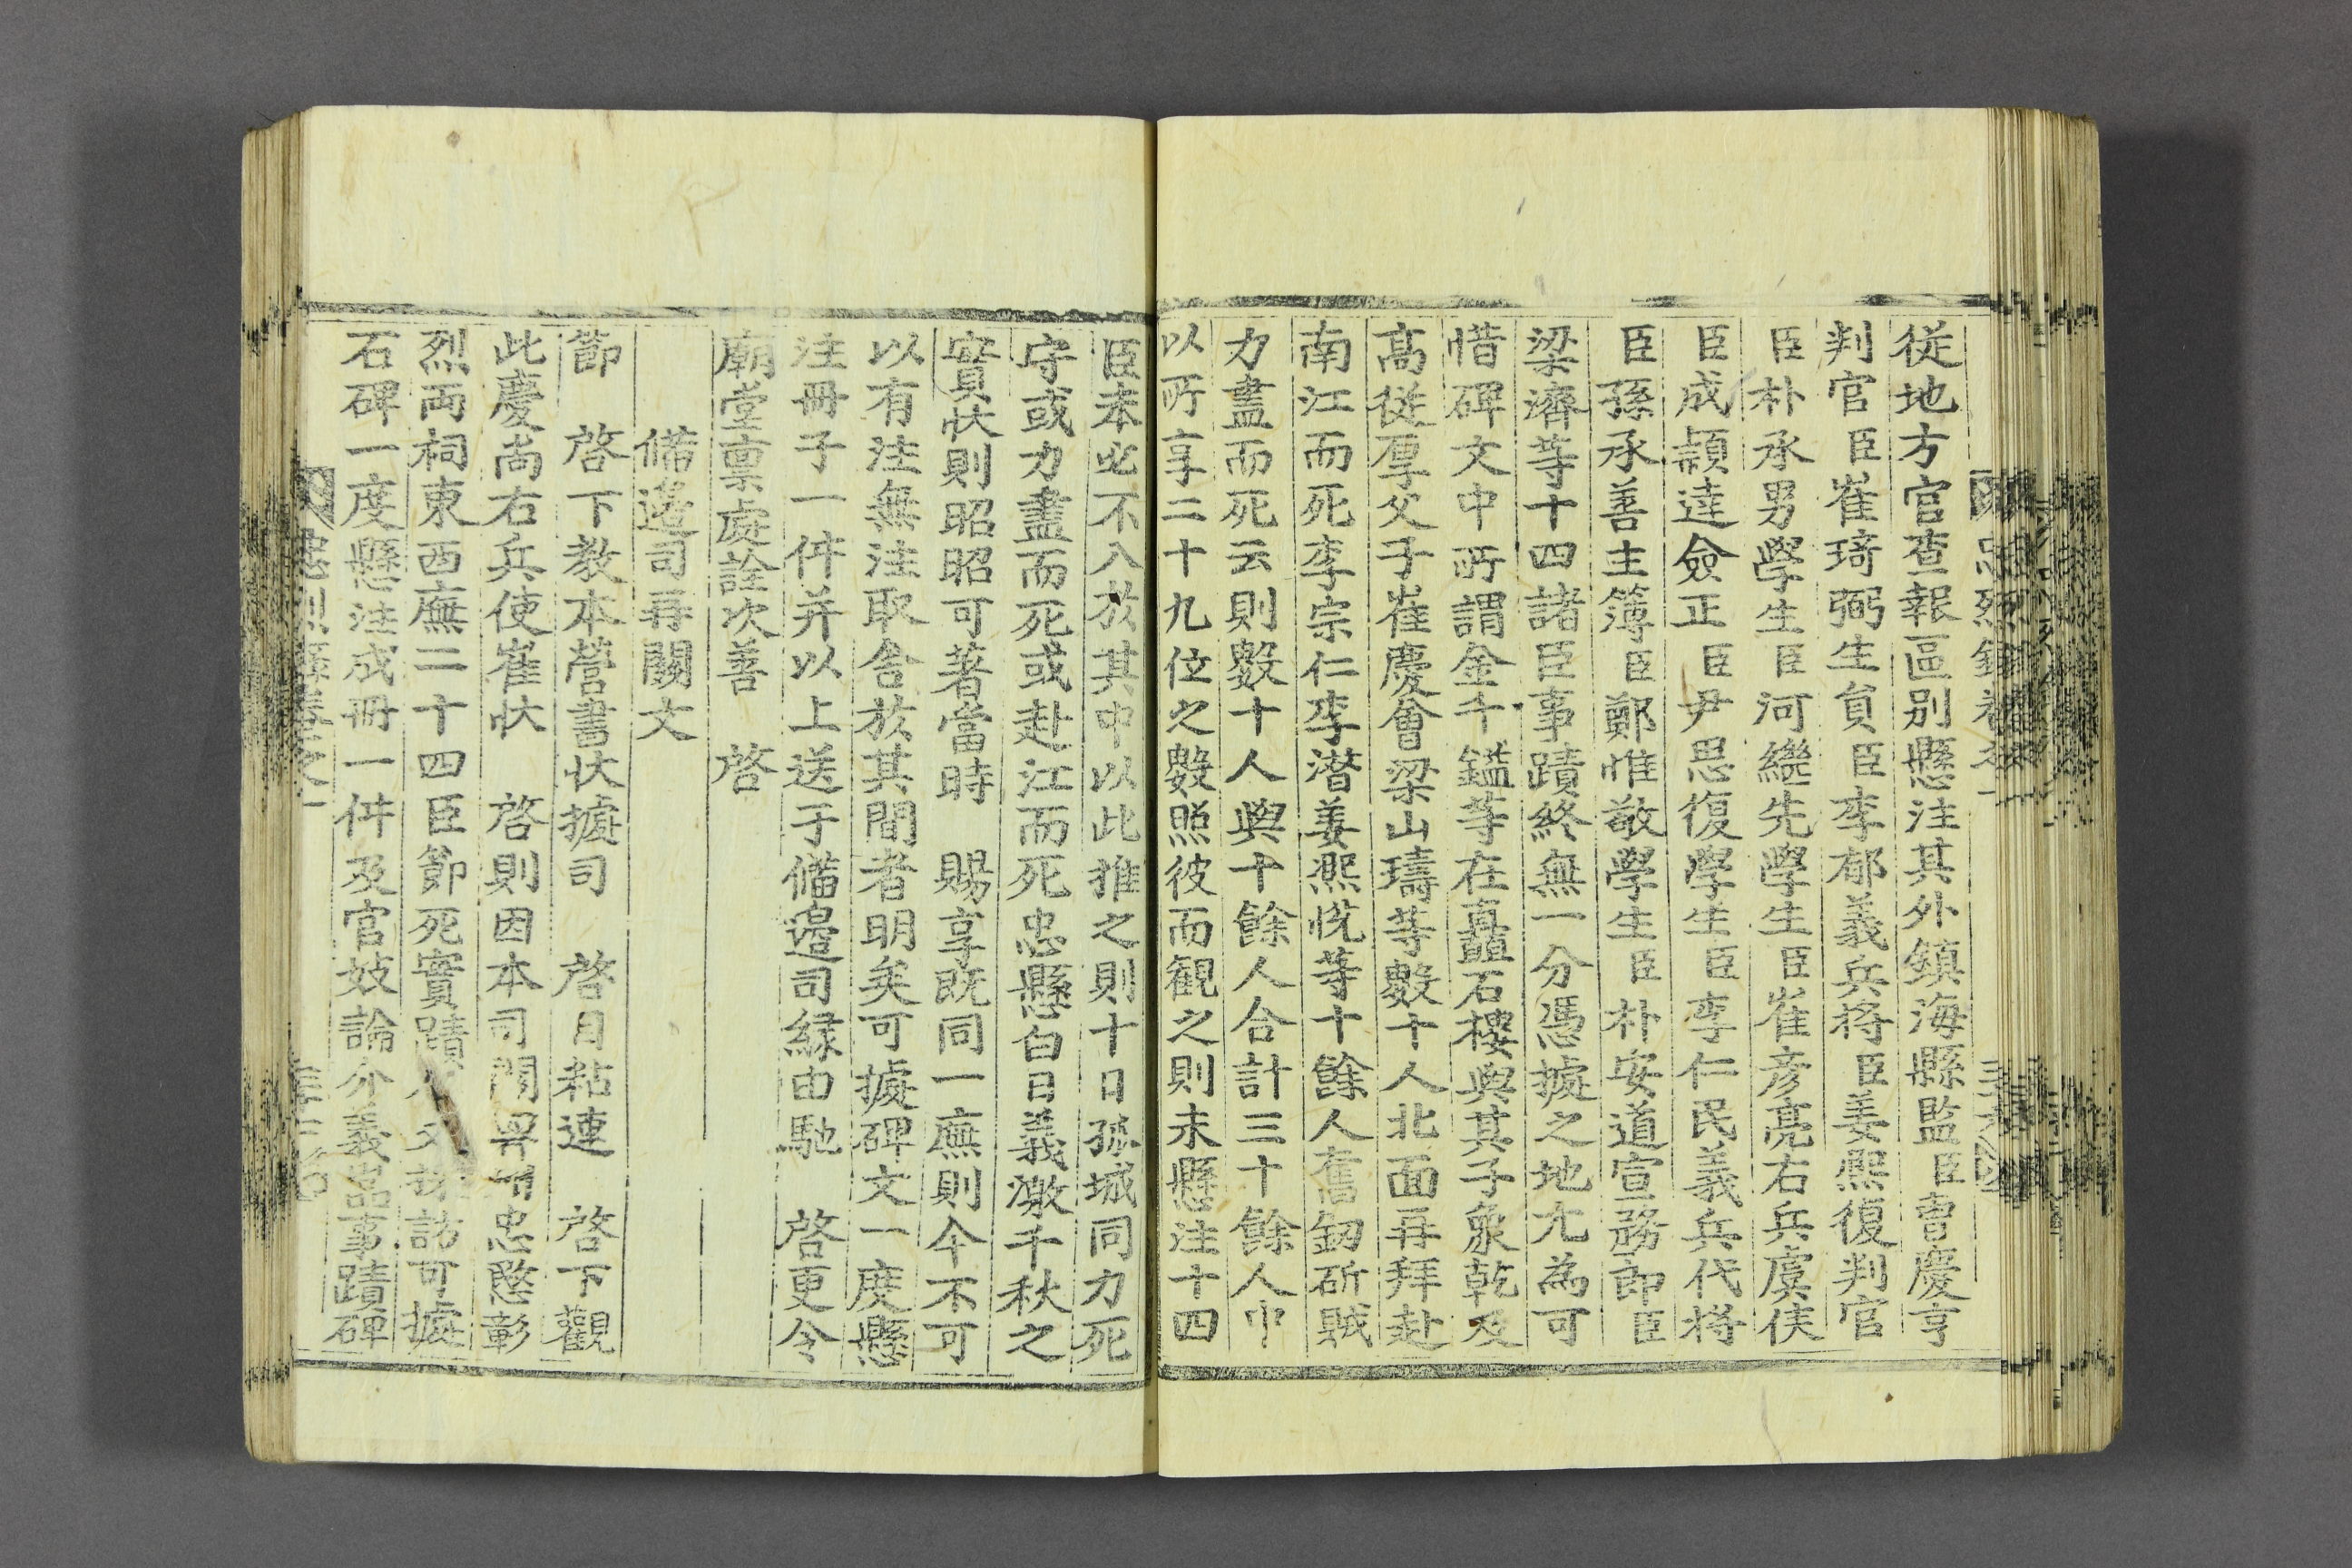 從地方官查報區別懸注其外鎭海縣監臣曺慶亨
判官臣崔琦弼生員臣李郁義兵將臣姜熙復判官
臣朴承男學生臣河繼先學生臣崔彦亮右兵虞侯
臣成頴達僉正臣尹思復學生臣李仁民義兵代將
臣孫承善主簿臣鄭惟敬學生臣朴安道宣務郎臣
梁濟等十四諸臣事蹟終無一分憑據之地尤為可
惜碑文中所謂金千鎰等在矗石樓與其子象乾及
高從厚父子崔慶會梁山璹等數十人北面再拜赴
南江而死李宗仁李潛姜熙恱等十餘人奮釰斫賊
力盡而死云則數十人與十餘人合計三十餘人中
以所享二十九位之數照彼而觀之則未懸注十四
臣本必不入於其中以此推之則十日孤城同力死
守或力盡而死或赴江而死忠懸白日義激千秋之
實狀則昭昭可著當時 賜享既同一廡則今不可
以有注無注取舍於其間者明矣可據碑文一度懸
注冊子一件并以上送于備邊司緣由馳 啓更令
廟堂稟處詮次善 啓
備邊司再關文
節 啓下教本營書狀據司 啓目粘連 啓下觀
此慶尙右兵使崔狀 啓則因本司關 忠愍彰
烈兩祠東西廡二十四臣節死實蹟 訪可據
石碑一度懸注成冊一件及官妓論介義嵓事蹟碑